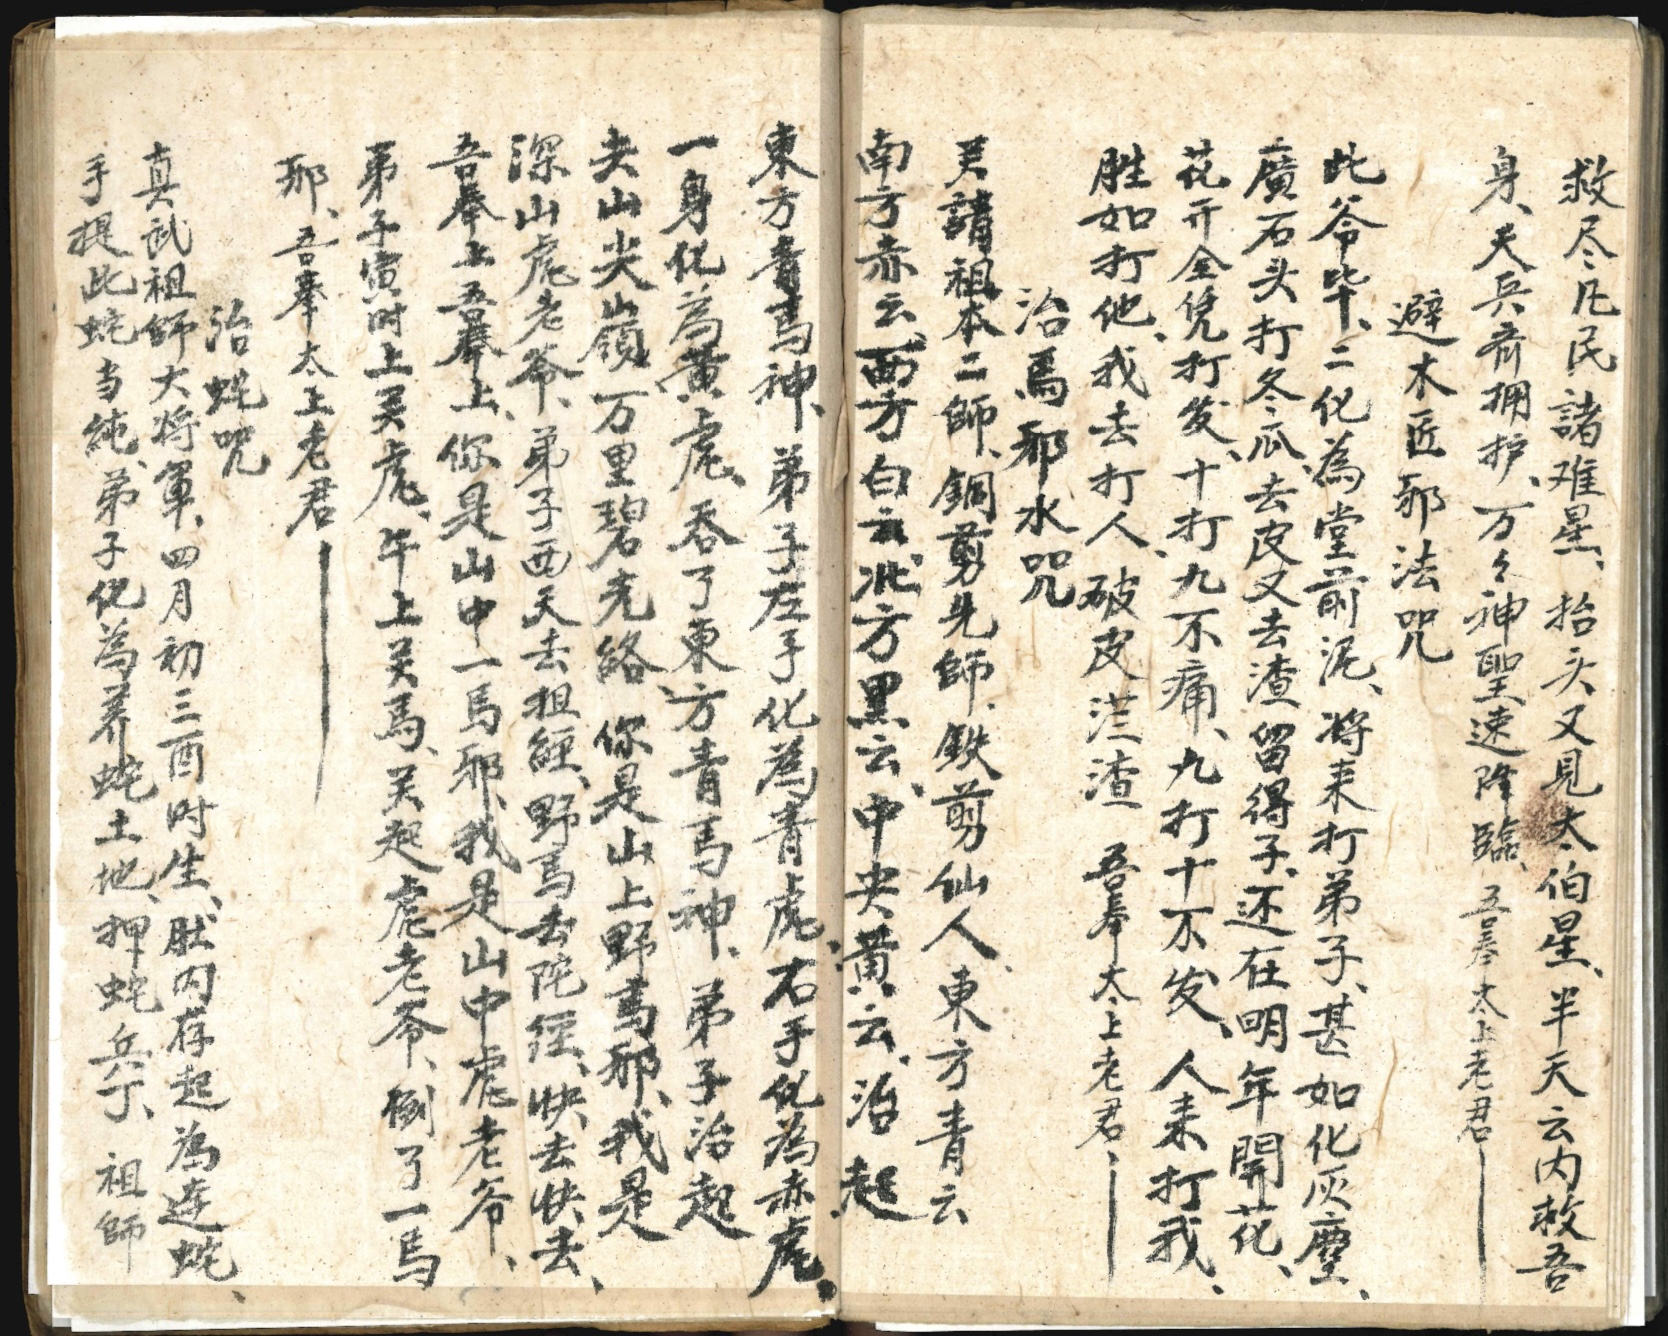 救尽凡民諸难星、抬头又見太伯星、半天云内救吾
身、天兵齐拥护、万々神聖速降臨、吾奉太上老君
避木匠邪法咒
此爷毕、二化為堂前泥、将来打弟子、甚如化灰塵、
廣石头打冬瓜、去皮又去渣、留得子、还在明年開花、
花开全凭打发、十打九不痛、九打十不发、人来打我、
胜如打他、我去打人、破皮渣 吾奉太上老君
治馬邪水咒
关請祖本二師、銅剪先師、鉄剪仙人、東方青云
南方赤云、西方白云、北方黑云、中央黄云、治起
東方青馬神、弟子左手化為青虎、右手化為赤虎、
一身化為黄虎、吞了東方青馬神、弟子治起
尖山尖山嶺万里碧光 你是山上野馬邪、我是
深山虎老爷、弟子西天去担經、野馬去陀經、快去快去、
吾奉上吾奉上、你是山中一馬邪、我是山中虎老爷、
弟子寅时上关虎、午上关馬、关起虎老爷、倒了一馬
邪、吾奉太上老君
治蛇咒
真武祖師大将軍、四月初三酉时生、肚内存起為连蛇、
手提此蛇当純、弟子化為养蛇土地、押蛇兵丁、祖師